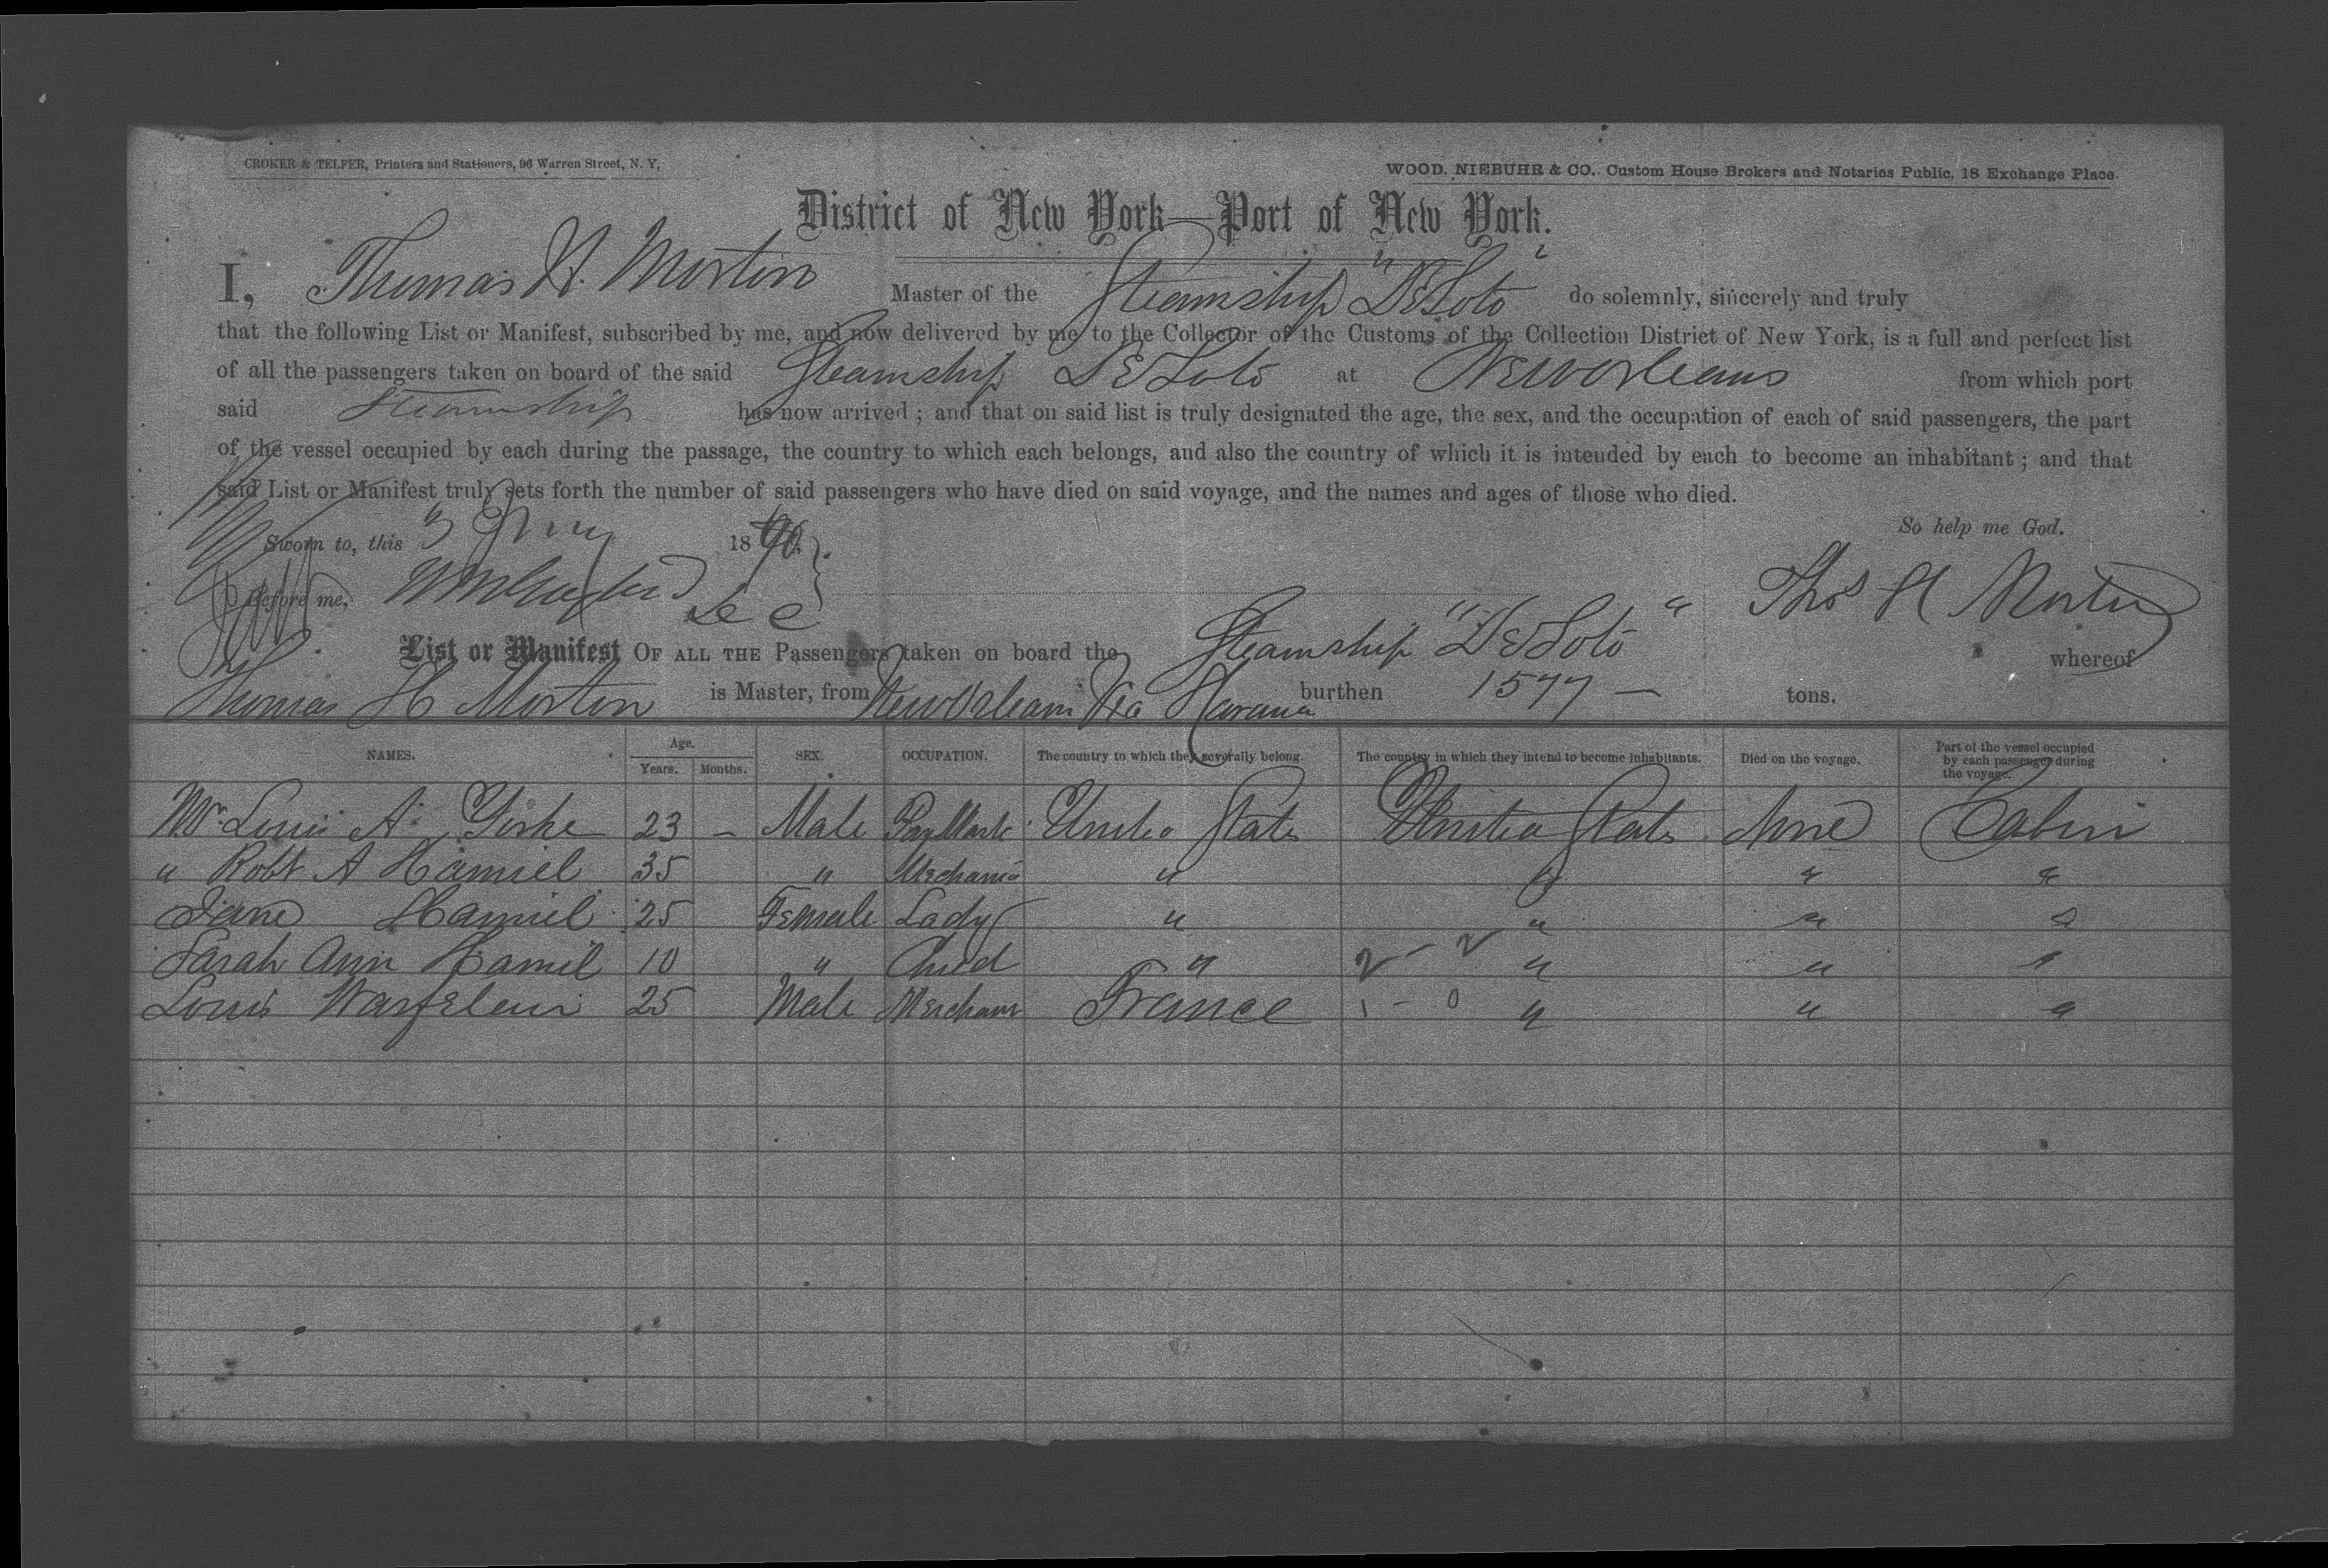 CROKER & TELFER, Printers and Stationers, 96 Warren Street, N. Y,
WOOD, NIEBUHR & CO., Custom House Brokers and Notaries Public, 18 Exchange Place.
District of New York—Port of New York.
I, Thomas H. Morton Master of the Steamship "De Soto" do solemnly, sincerely and truly
that the following List or Manifest, subscribed by me, and now delivered by me to the Collector of the Customs of the Collection District of New York, is a full and perfect list
of all the passengers taken on board of the said Steamship De Soto at New Orleans from which port
said Steamship has now arrived ; and that on said list is truly designated the age, the sex, and the occupation of each of said passengers, the part
of the vessel occupied by each during the passage, the country to which each belongs, and also the country of which it is intended by each to become an inhabitant ; and that
said List or Manifest truly sets forth the number of said passengers who have died on said voyage, and the names and ages of those who died.
So help me God.
Sworn to, this 3 18
Before me, Thos H Morton
List or Manifest OF ALL THE Passengers taken on board the Steamship "De Soto" whereof
Thomas H Morton is Master, from New Orleans Via Havana burthen 1577 — tons.
NAMES. Age. Years. Months. SEX. OCCUPATION. The country to which they severally belong. The country in which they intend to become inhabitants. Died on the voyage. Part of the vessel occupied by each passenger during the voyage.
Mr Louis A. Yorke 23 – Male PayMastr United States United States None Cabin
" Robt A Hamiel 35 " Mechanic " " " "
Jane Hamiel 25 Female Lady " " " "
Sarah Ann Hamil 10 " Child " 2 - 2 " " "
Louis 25 Male Merchant France 1 - 0 " " "